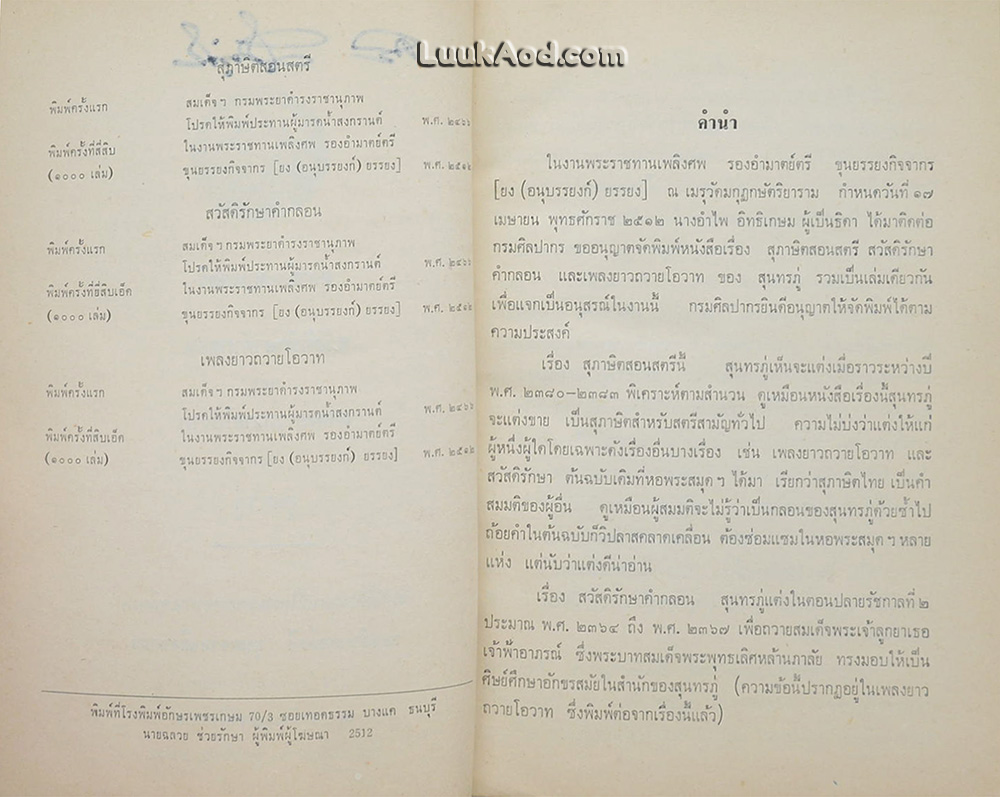 LuukAod.com
สุภาษิตสอนสตรี
พิมพ์ครั้งแรก สมเด็จฯ กรมพระยาดำรงราชานุภาพ
โปรดให้พิมพ์ประทานผู้มารดน้ำสงกรานต์ พ.ศ. ๒๔๖๖
พิมพ์ครั้งที่สี่สิบ ในงานพระราชทานเพลิงศพ รองอำมาตย์ตรี
(๑๐๐๐ เล่ม) ขุนยรรยงกิจจากร [ยง (อนุบรรยงก์) ยรรยง] พ.ศ. ๒๕๑๒
สวัสดิรักษาคำกลอน
พิมพ์ครั้งแรก สมเด็จฯ กรมพระยาดำรงราชานุภาพ
โปรดให้พิมพ์ประทานผู้มารดน้ำสงกรานต์ พ.ศ. ๒๔๖๖
พิมพ์ครั้งที่ยี่สิบเอ็ด ในงานพระราชทานเพลิงศพ รองอำมาตย์ตรี
(๑๐๐๐ เล่ม) ขุนยรรยงกิจจากร [ยง (อนุบรรยงก์) ยรรยง] พ.ศ. ๒๕๑๒
เพลงยาวถวายโอวาท
พิมพ์ครั้งแรก สมเด็จฯ กรมพระยาดำรงราชานุภาพ
โปรดให้พิมพ์ประทานผู้มารดน้ำสงกรานต์ พ.ศ. ๒๔๖๖
พิมพ์ครั้งที่สิบเอ็ด ในงานพระราชทานเพลิงศพ รองอำมาตย์ตรี
(๑๐๐๐ เล่ม) ขุนยรรยงกิจจากร [ยง (อนุบรรยงก์) ยรรยง] พ.ศ. ๒๕๑๒
พิมพ์ที่โรงพิมพ์อักษรเพชรเกษม 70/3 ซอยเทอดธรรม บางแค ธนบุรี
นายฉลวย ช่วยรักษา ผู้พิมพ์ผู้โฆษณา 2512
คำนำ
ในงานพระราชทานเพลิงศพ รองอำมาตย์ตรี ขุนยรรยงกิจจากร
[ยง (อนุบรรยงก์) ยรรยง] ณ เมรุวัดมกุฏกษัตริยาราม กำหนดวันที่ ๑๗
เมษายน พุทธศักราช ๒๕๑๒ นางอำไพ อิทธิเกษม ผู้เป็นธิดา ได้มาติดต่อ
กรมศิลปากร ขออนุญาตจัดพิมพ์หนังสือเรื่อง สุภาษิตสอนสตรี สวัสดิรักษา
คำกลอน และเพลงยาวถวายโอวาท ของ สุนทรภู่ รวมเป็นเล่มเดียวกัน
เพื่อแจกเป็นอนุสรณ์ในงานนี้ กรมศิลปากรยินดีอนุญาตให้จัดพิมพ์ได้ตาม
ความประสงค์
เรื่อง สุภาษิตสอนสตรีนี้ สุนทรภู่เห็นจะแต่งเมื่อราวระหว่างปี
พ.ศ. ๒๓๘๐–๒๓๘๓ พิเคราะห์ตามสำนวน ดูเหมือนหนังสือเรื่องนี้สุนทรภู่
จะแต่งขาย เป็นสุภาษิตสำหรับสตรีสามัญทั่วไป ความไม่บ่งว่าแต่งให้แก่
ผู้หนึ่งผู้ใดโดยเฉพาะดังเรื่องอื่นบางเรื่อง เช่น เพลงยาวถวายโอวาท และ
สวัสดิรักษา ต้นฉบับเดิมที่หอพระสมุดฯ ได้มา เรียกว่าสุภาษิตไทย เป็นคำ
สมมติของผู้อื่น ดูเหมือนผู้สมมติจะไม่รู้ว่าเป็นกลอนของสุนทรภู่ด้วยซ้ำไป
ถ้อยคำในต้นฉบับก็วิปลาสคลาดเคลื่อน ต้องซ่อมแซมในหอพระสมุดฯ หลาย
แห่ง แต่นับว่าแต่งดีน่าอ่าน
เรื่อง สวัสดิรักษาคำกลอน สุนทรภู่แต่งในตอนปลายรัชกาลที่ ๒
ประมาณ พ.ศ. ๒๓๖๔ ถึง พ.ศ. ๒๓๖๗ เพื่อถวายสมเด็จพระเจ้าลูกยาเธอ
เจ้าฟ้าอาภรณ์ ซึ่งพระบาทสมเด็จพระพุทธเลิศหล้านภาลัย ทรงมอบให้เป็น
ศิษย์ศึกษาอักขรสมัยในสำนักของสุนทรภู่ (ความข้อนี้ปรากฏอยู่ในเพลงยาว
ถวายโอวาท ซึ่งพิมพ์ต่อจากเรื่องนี้แล้ว)